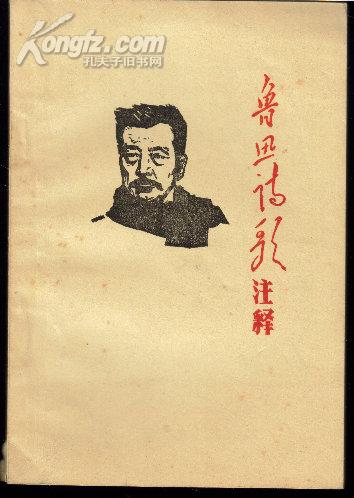 Kongfz.com
孔夫子旧书网
鲁迅诗歌
注释